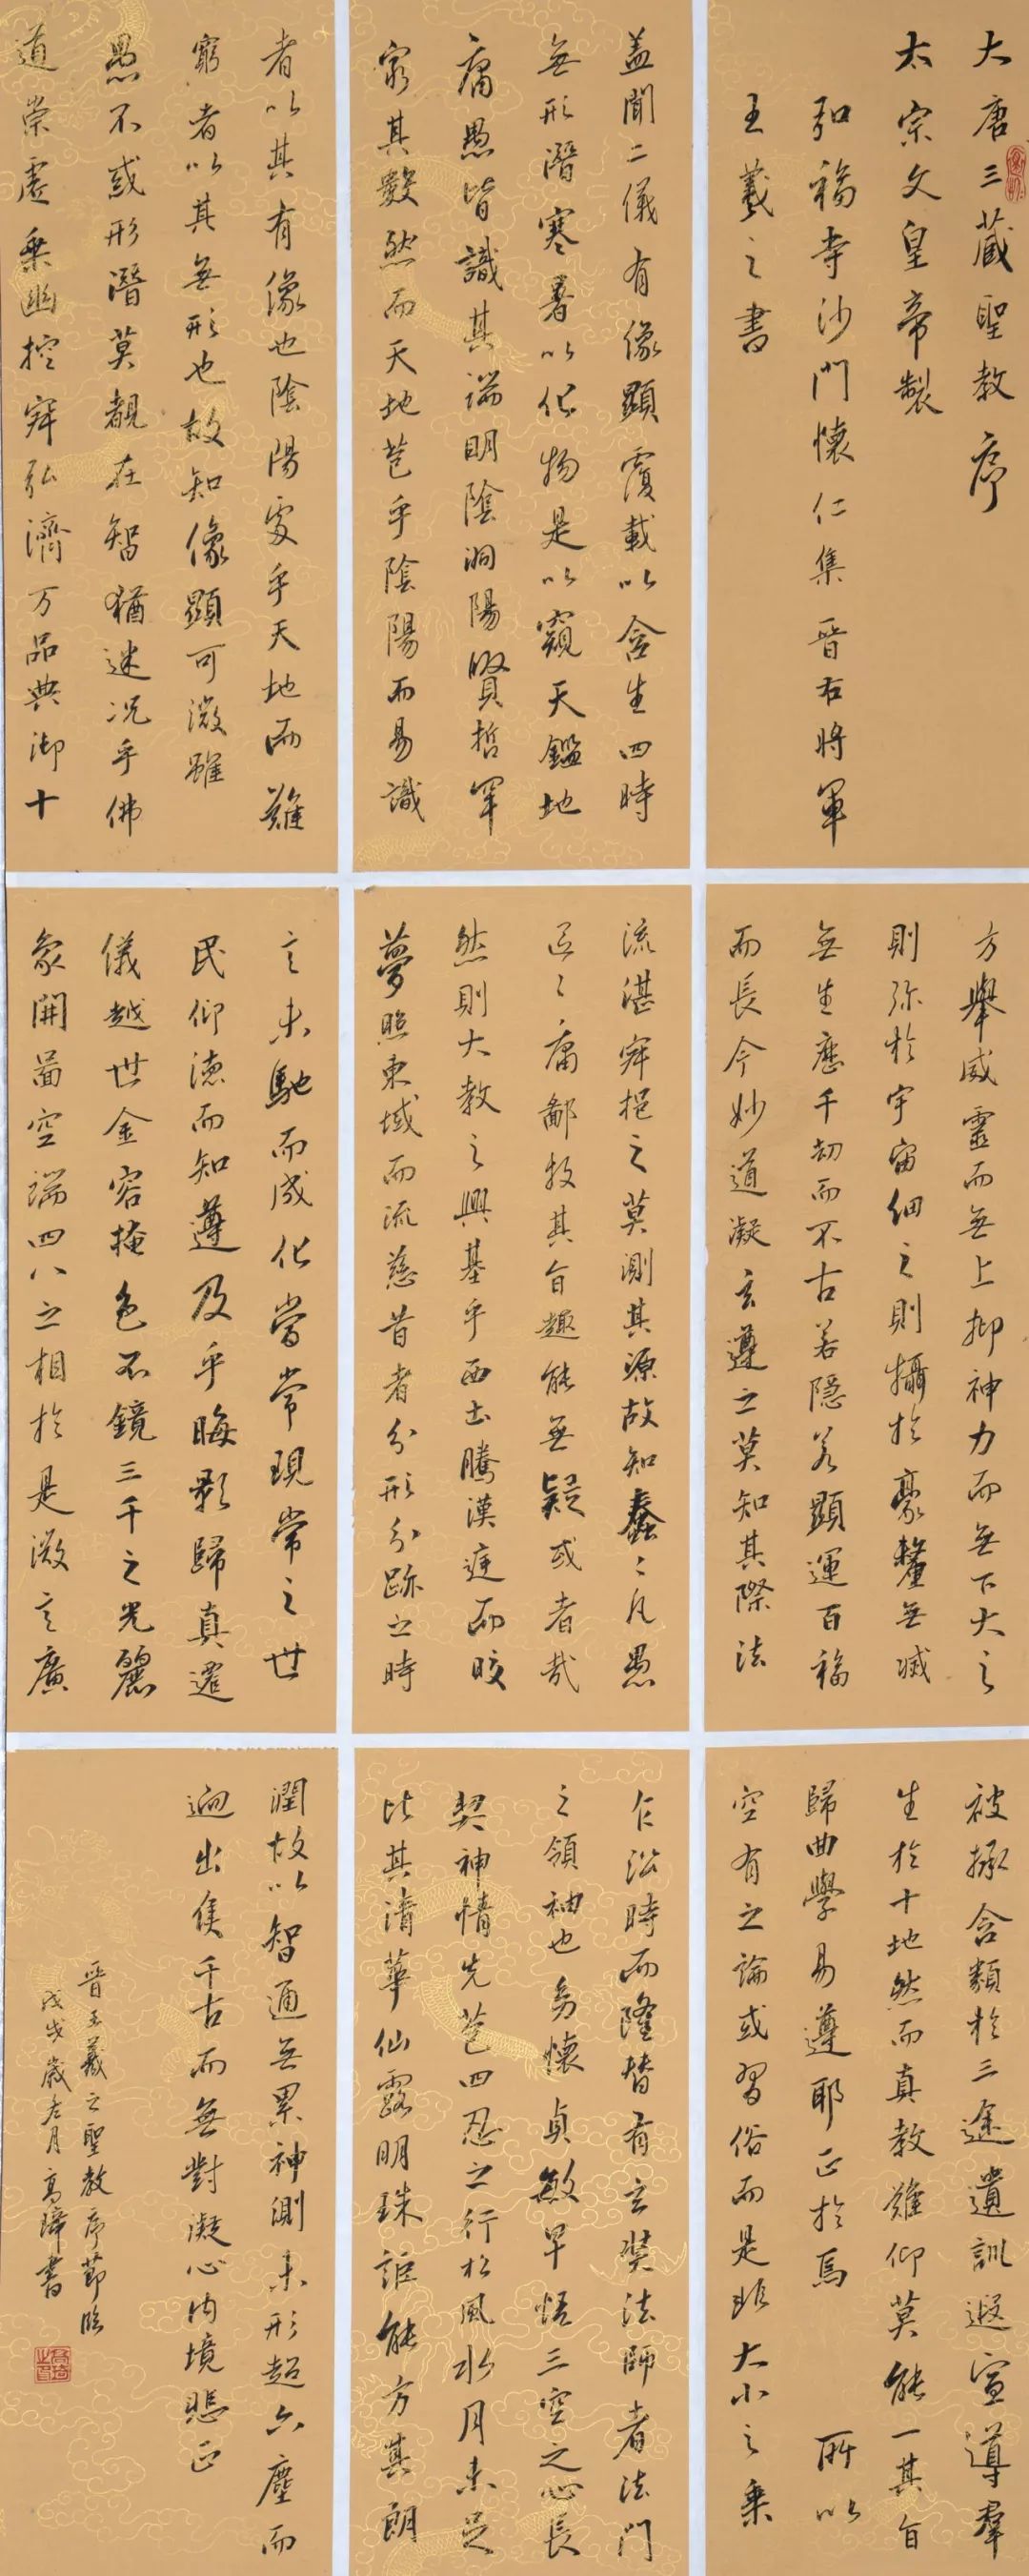 大唐三藏聖教序
太宗文皇帝製
弘福寺沙門懷仁集晉右將軍
王羲之書
蓋聞二儀有像顯覆載以含生四時
無形潛寒暑以化物是以窺天鑑地
庸愚皆識其端明陰洞陽賢哲罕
窮其數然而天地苞乎陰陽而易識
者以其有像也陰陽處乎天地而難
窮者以其無形也故知像顯可徵雖
愚不惑形潛莫覩在智猶迷況乎佛
道崇虛乘幽控寂弘濟万品典御十
方舉威靈而無上抑神力而無下大之
則弥於宇宙細之則攝於豪釐無滅
無生歷千劫而不古若隱若顯運百福
而長今妙道凝玄遵之莫知其際法
流湛寂挹之莫測其源故知蠢〻凡愚
區〻庸鄙投其旨趣能無疑或者哉
然則大教之興基乎西土騰漢庭而皎
夢照東域而流慈昔者分形分跡之時
言未馳而成化當常現常之世
民仰德而知遵及乎晦影歸真遷
儀越世金容掩色不鏡三千之光麗
象開圖空端四八之相於是微言廣
被拯含類於三途遺訓遐宣導羣
生於十地然而真教難仰莫能一其旨
歸曲學易遵耶正於焉所以
空有之論或習俗而是非大小之乘
乍沿時而隆替有玄奘法師者法門
之領袖也幼懷貞敏早悟三空之心長
契神情先苞四忍之行松風水月未足
比其清華仙露明珠詎能方其朗
潤故以智通無累神測未形超六塵而
迥出隻千古而無對凝心內境悲正
晉王羲之聖教序節臨
戊戌歲冬月高瑋書